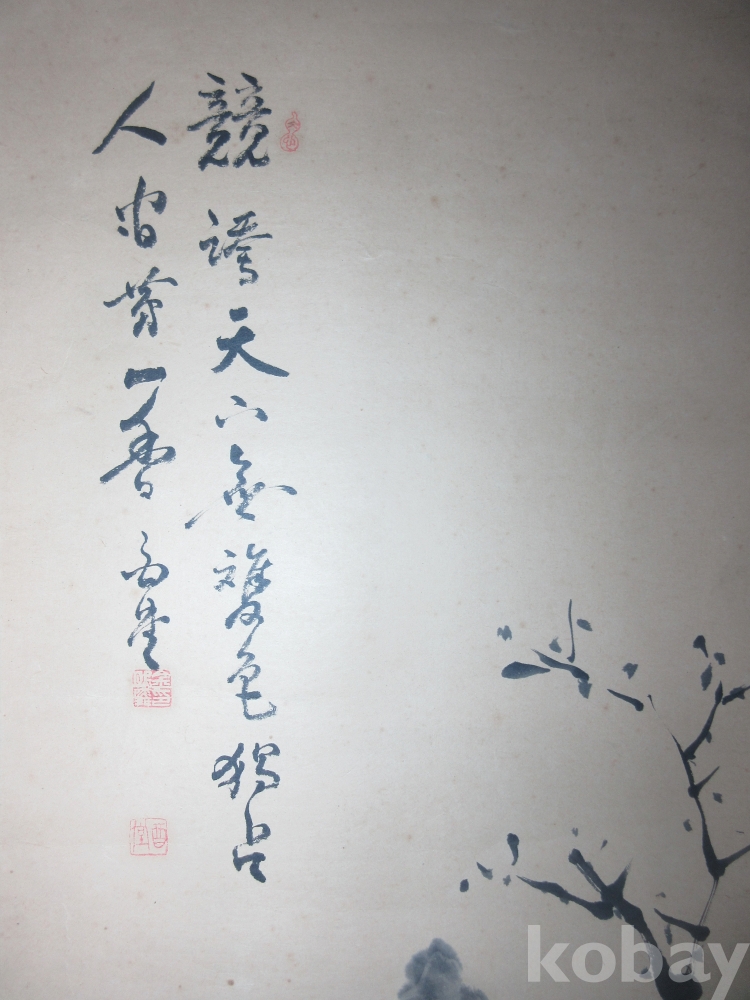 競誇天下無雙色獨占
人間第一香
kobay